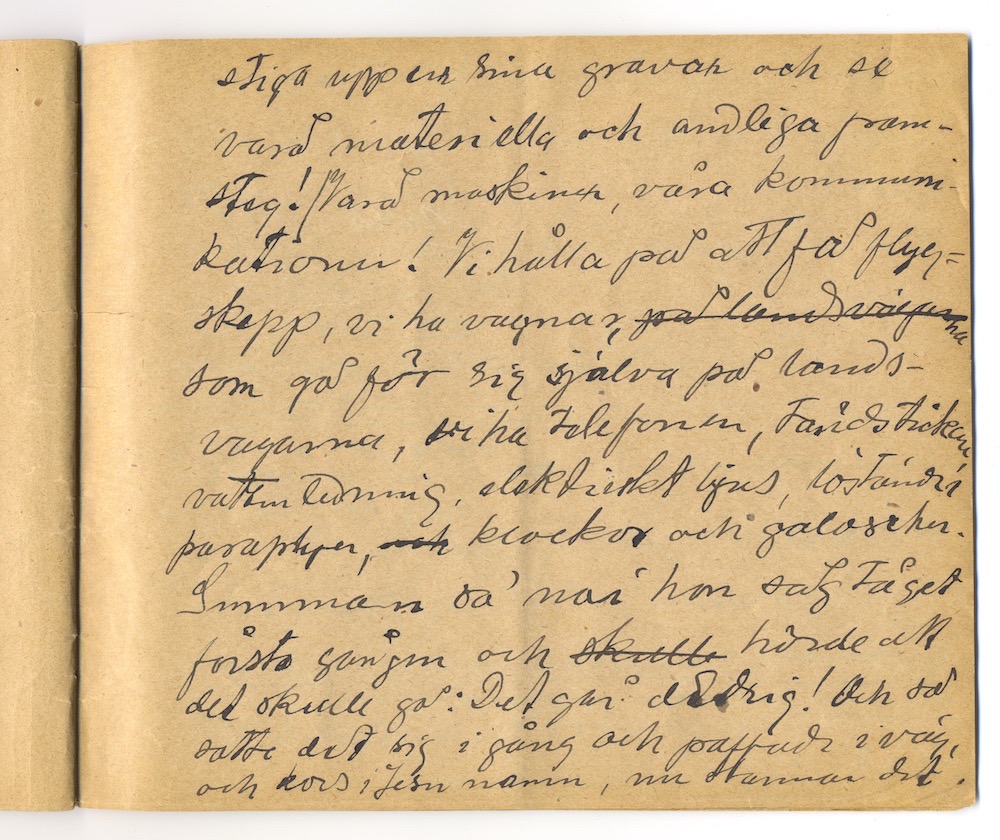 stiga upp ur sina gravar och se
vara materiella och andliga fram-
steg! Vara maskiner, våra kommuni-
kationer! Vi hålla på att få flyg-
skepp, vi ha vagnar, på landsvägarna
som gå för sig själva på lands-
vägarna, vi ha telefonen, tändstickan
vattenledning, elektriskt ljus, löständer
paraplyer, och klockor och galoscher.
Gumman sa' när hon såg tåget
första gången och skulle hörde att
det skulle gå: Det går aldrig! Och så
satte det sig i gång och paffade i väg,
och kors i Jesu namn, nu stannar det.